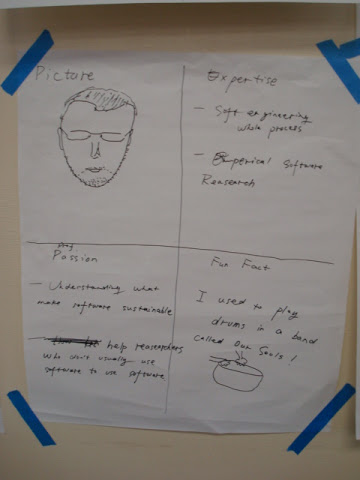 Picture
Expertise
- Soft engineering
whole process
- Emperical Software
Reasearch
Passion
- Understanding what
make software sustainable
- help reasearchers
who don't usually use
software to use software
Fun Fact
I used to play
drums in a band
called Our Souls!